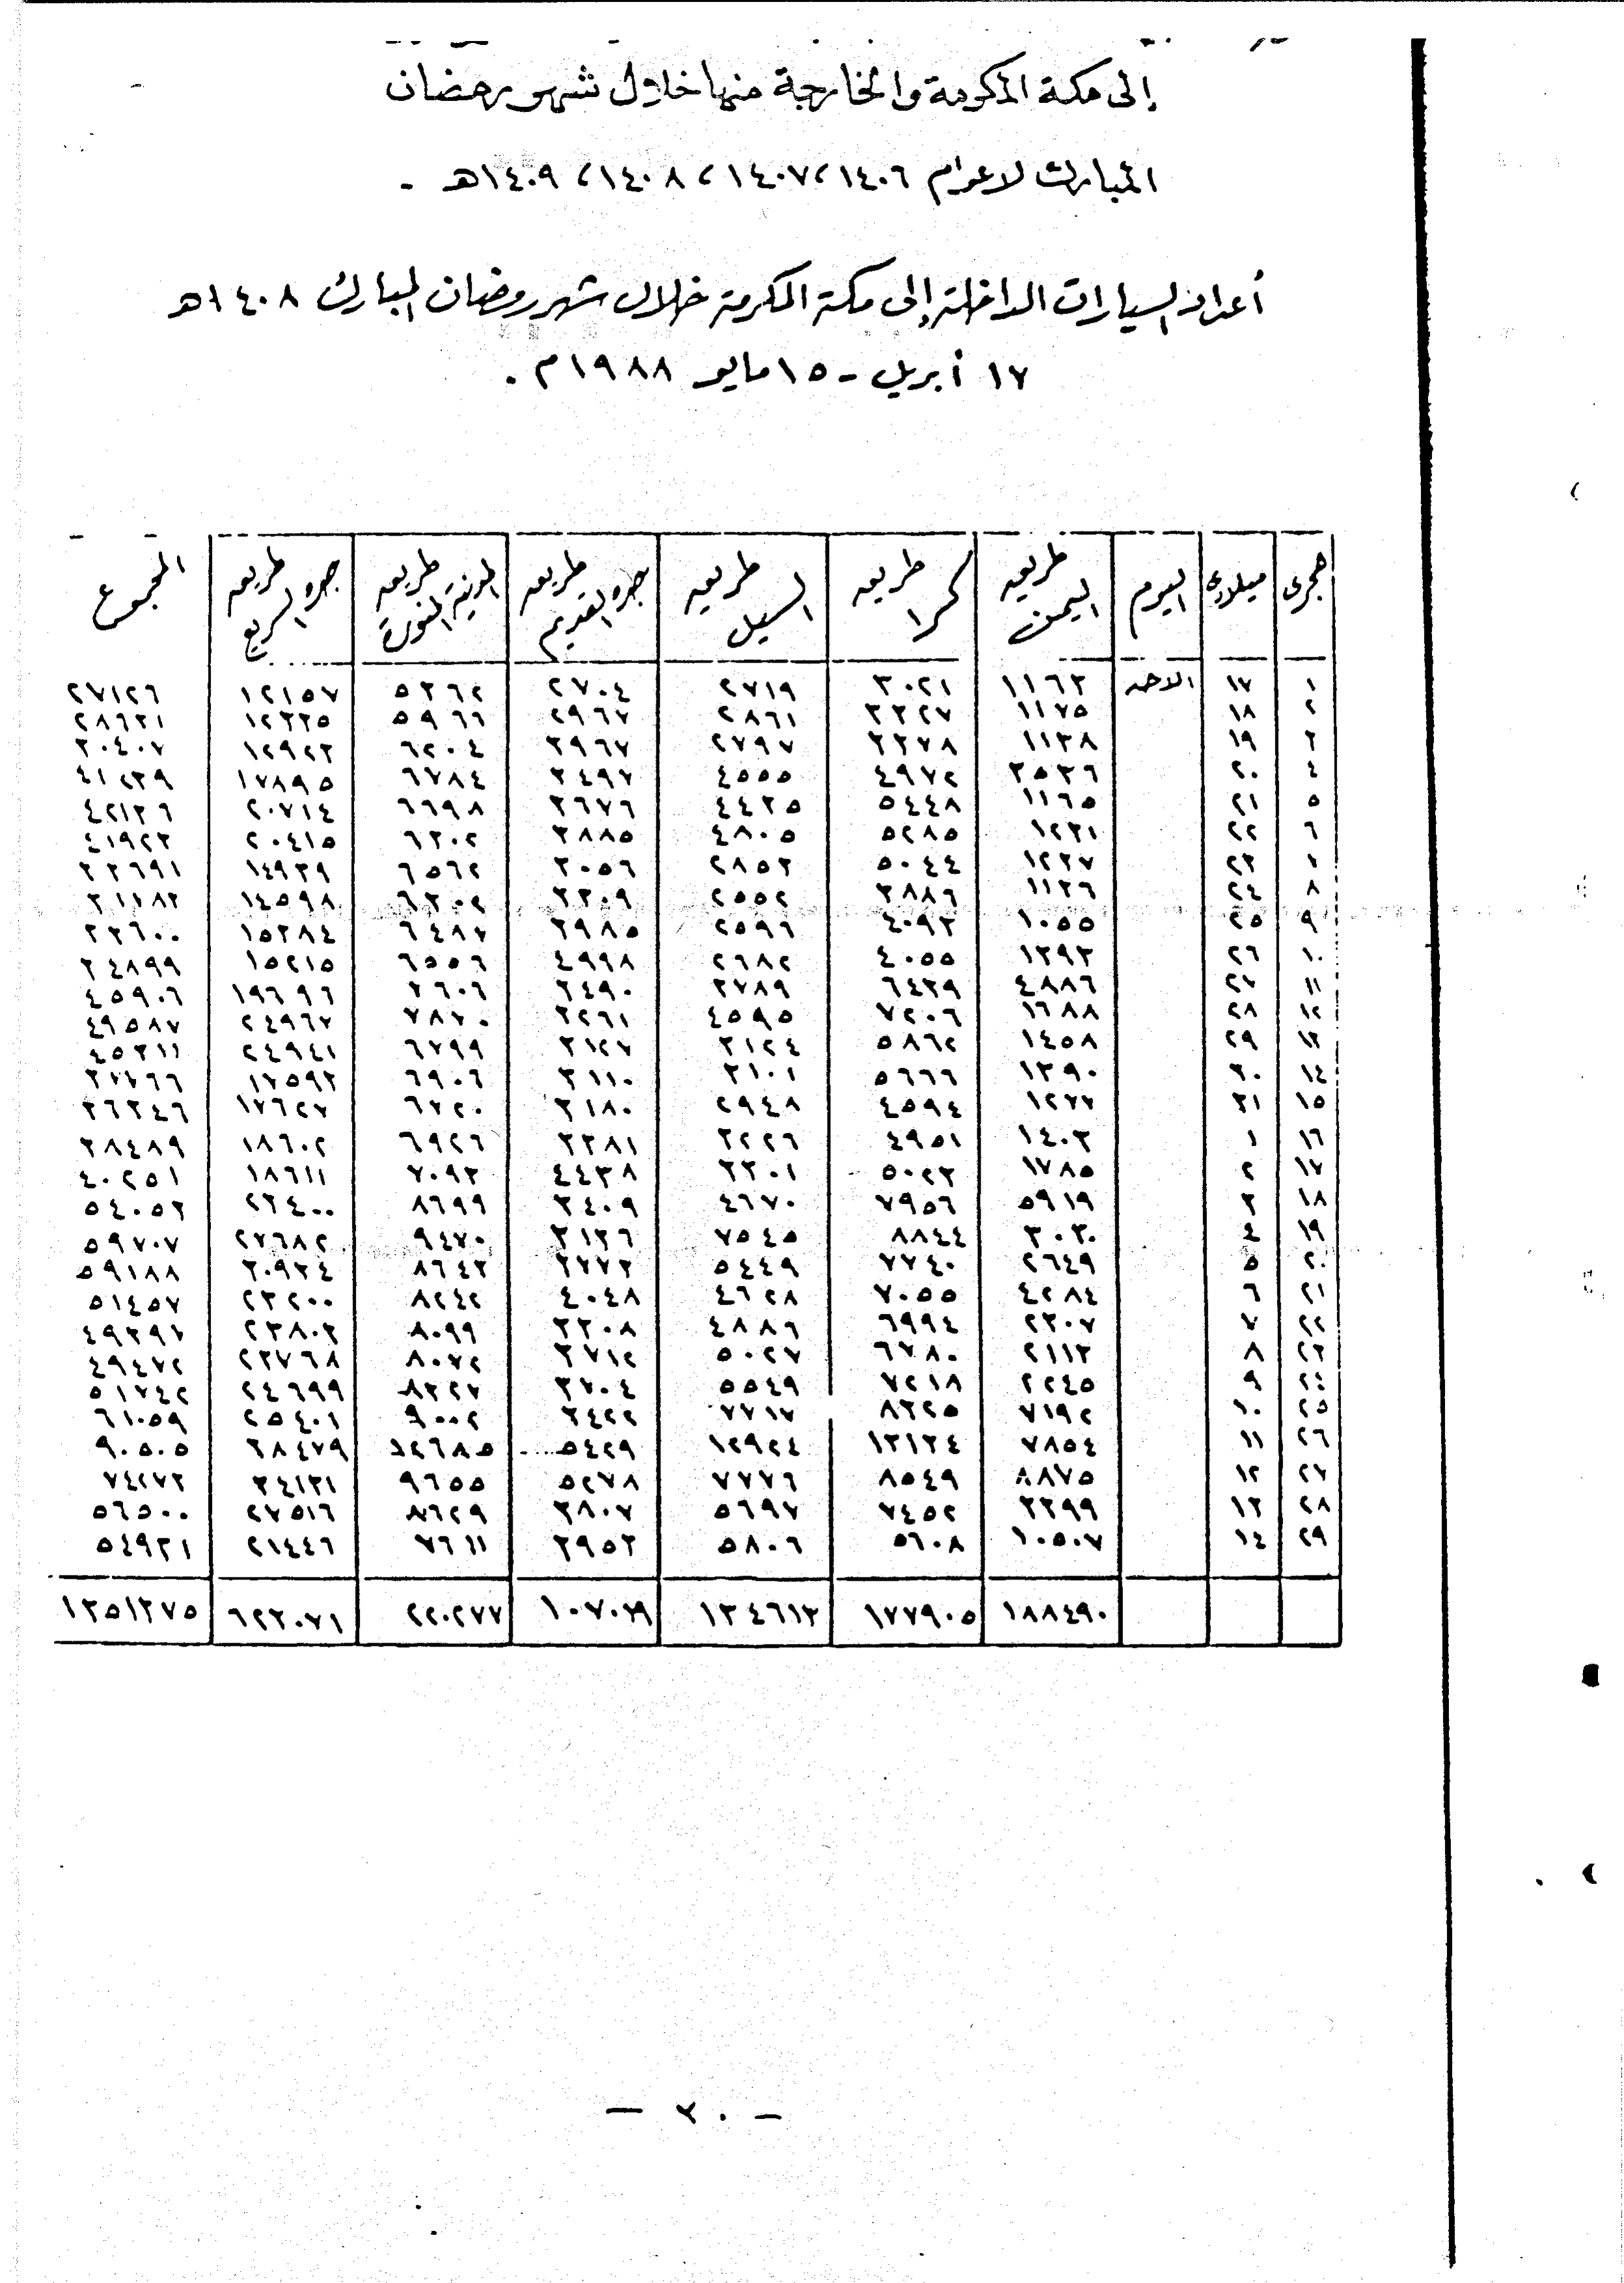 إلى مكة المكرمة والخارجة منها خلال شهر رمضان
المبارك لاعوام ١٤٠٦، ١٤٠٧، ١٤٠٨، ١٤٠٩هـ -
أعداد السيارات الداخلة إلى مكة المكرمة خلال شهر رمضان المبارك ١٤٠٨هـ
١٧ أبريل - ١٥ مايو ١٩٨٨م .
هجرى ميلادى اليوم طريق اليمن طريق كرا طريق السيل طريق جده القديم طريق المدينة المنورة طريق جده السريع المجموع
١ ١٧ الاحد ١١٦٣ ٣٠٢١ ٢٧١٩ ٢٧٠٤ ٥٣٦٢ ١٢١٥٧ ٢٧١٢٦
٢ ١٨ ١١٧٥ ٣٣٢٧ ٢٨٦١ ٢٩٦٧ ٥٩٦٦ ١٢٣٣٥ ٢٨٦٣١
٣ ١٩ ١١٣٨ ٣٣٧٨ ٢٧٩٧ ٣٩٦٧ ٦٢٠٤ ١٢٩٢٣ ٣٠٤٠٧
٤ ٢٠ ٣٥٣٦ ٤٩٧٢ ٤٥٥٥ ٣٤٩٧ ٦٧٨٤ ١٧٨٩٥ ٤١٢٣٩
٥ ٢١ ١١٦٥ ٥٤٤٨ ٤٤٣٥ ٣٦٧٦ ٦٦٩٨ ٢٠٧١٤ ٤٢١٣٦
٦ ٢٢ ١٢٣١ ٥٢٨٥ ٤٨٠٥ ٣٨٨٥ ٦٣٠٢ ٢٠٤١٥ ٤١٩٢٣
٧ ٢٣ ١٢٣٧ ٥٠٤٤ ٢٨٥٣ ٣٠٥٦ ٦٥٦٢ ١٤٩٣٩ ٣٣٦٩١
٨ ٢٤ ١١٣٦ ٣٨٨٦ ٢٥٥٢ ٣٣٠٩ ٦٣٠٢ ١٤٥٩٨ ٣١٧٨٣
٩ ٢٥ ١٠٥٥ ٤٠٩٣ ٢٥٩٦ ٣٩٨٥ ٦٤٨٧ ١٥٣٨٤ ٣٣٦٠٠
١٠ ٢٦ ١٣٩٣ ٤٠٥٥ ٢٦٨٢ ٤٩٩٨ ٦٥٥٦ ١٥٢١٥ ٣٤٨٩٩
١١ ٢٧ ٤٨٨٦ ٦٤٣٩ ٣٧٨٩ ٣٤٩٠ ٧٦٠٦ ١٩٦٩٦ ٤٥٩٠٦
١٢ ٢٨ ١٦٨٨ ٧٢٠٦ ٤٥٩٥ ٣٢٦١ ٧٨٧٠ ٢٤٩٦٧ ٤٩٥٨٧
١٣ ٢٩ ١٤٥٨ ٥٨٦٢ ٣١٢٤ ٣١٢٧ ٦٧٩٩ ٢٤٩٤١ ٤٥٣١١
١٤ ٣٠ ١٣٩٠ ٥٦٦٦ ٣١٠١ ٣١١٠ ٦٩٠٦ ١٧٥٩٣ ٣٧٧٦٦
١٥ ٣١ ١٢٧٧ ٤٥٩٤ ٢٩٤٨ ٣١٨٠ ٦٧٢٠ ١٧٦٢٧ ٣٦٣٤٦
١٦ ١ ١٤٠٣ ٤٩٥١ ٣٢٢٦ ٣٣٨١ ٦٩٢٦ ١٨٦٠٢ ٣٨٤٨٩
١٧ ٢ ١٧٨٥ ٥٠٢٣ ٣٣٠١ ٤٤٣٨ ٧٠٩٣ ١٨٦١١ ٤٠٢٥١
١٨ ٣ ٥٩١٩ ٧٩٥٦ ٤٦٧٠ ٣٤٠٩ ٨٦٩٩ ٢٣٤٠٠ ٥٤٠٥٣
١٩ ٤ ٣٠٣٠ ٨٨٤٤ ٧٥٤٥ ٣١٣٦ ٩٤٧٠ ٢٧٦٨٢ ٥٩٧٠٧
٢٠ ٥ ٢٦٤٩ ٧٧٤٠ ٥٤٤٩ ٣٧٧٣ ٨٦٤٣ ٣٠٩٣٤ ٥٩١٨٨
٢١ ٦ ٤٢٨٤ ٧٠٥٥ ٤٦٢٨ ٤٠٤٨ ٨٢٤٢ ٢٣٢٠٠ ٥١٤٥٧
٢٢ ٧ ٢٣٠٧ ٦٩٩٤ ٤٨٨٦ ٣٣٠٨ ٨٠٩٩ ٢٣٨٠٣ ٤٩٣٩٧
٢٣ ٨ ٢١١٣ ٦٧٨٠ ٥٠٢٧ ٣٧١٢ ٨٠٧٢ ٢٣٧٦٨ ٤٩٤٧٢
٢٤ ٩ ٢٢٤٥ ٧٢١٨ ٥٥٤٩ ٣٧٠٤ ٨٣٢٧ ٢٤٦٩٩ ٥١٧٤٢
٢٥ ١٠ ٧١٩٢ ٨٣٢٥ ٧٧١٧ ٣٤٢٢ ٩٠٠٢ ٢٥٤٠١ ٦١٠٥٩
٢٦ ١١ ٧٨٥٤ ١٣١٣٤ ١٢٩٢٤ ٥٤٢٩ ١٢٦٨٥ ٣٨٤٧٩ ٩٠٥٠٥
٢٧ ١٢ ٨٨٧٥ ٨٥٤٩ ٧٧٧٦ ٥٢٧٨ ٩٦٥٥ ٣٤١٣١ ٧٤٢٧٣
٢٨ ١٣ ٣٣٩٩ ٧٤٥٢ ٥٦٩٧ ٣٨٠٧ ٨٦٢٩ ٢٧٥١٦ ٥٦٥٠٠
٢٩ ١٤ ١٠٥٠٧ ٥٦٠٨ ٥٨٠٦ ٣٩٥٣ ٧٦١١ ٢١٤٤٦ ٥٤٩٣١
١٨٨٤٩٠ ١٧٧٩٠٥ ١٣٤٦١٣ ١٠٧٠٢٩ ٢٢٠٢٧٧ ٦٢٣٠٧١ ١٣٥١٣٧٥
- ٢٠ -